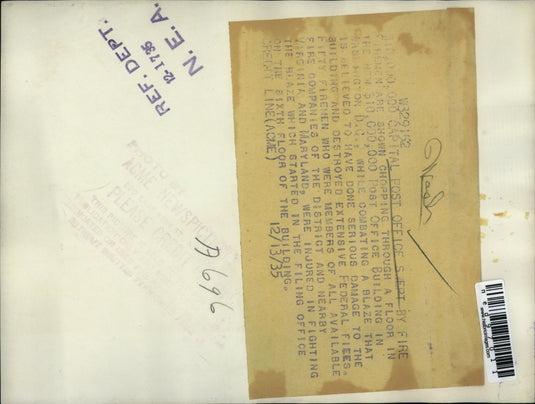 W329182
$10,000,000 CAPITAL POST OFFICE SWEPT BY FIRE
FIREMEN ARE SHOWN CHOPPING THROUGH A FLOOR IN
THE NEW $10,000,000 POST OFFICE BUILDING IN
WASHINGTON D.C., WHILE COMBATING A BLAZE THAT
IS BELIEVED TO HAVE DONE SERIOUS DAMAGE TO THE
BUILDING AND DESTROYED EXTENSIVE FEDERAL FILES.
FIFTY FIREMEN WHO WERE MEMBERS OF ALL AVAILABLE
FIRE COMPANIES OF THE DISTRICT AND NEARBY
VIRGINIA AND MARYLAND, WERE INJURED IN FIGHTING
THE BLAZE WHICH STARTED IN THE FILING OFFICE
ON THE SIXTH FLOOR OF THE BUILDING.
CREDIT LINE (ACME) 12/13/35
Wash
REF. DEPT.
12-17-35
N. E. A.
PHOTO BY
ACME NEWSPICTURES
A696